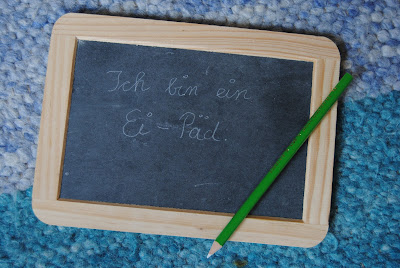 Ich bin ein
Ei = Päd.